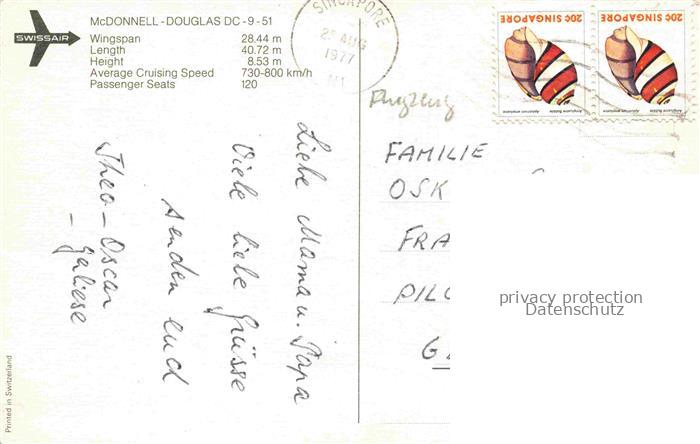 SWISSAIR
McDONNELL-DOUGLAS DC-9-51
Wingspan 28.44 m
Length 40.72 m
Height 8.53 m
Average Cruising Speed 730-800 km/h
Passenger Seats 120
SINGAPORE
AUG
1977
20¢ SINGAPORE
20¢ SINGAPORE
Flugzeug
Liebe Mama u. Papa
Viele liebe Grüsse
senden euch
Theo - Oscar
- Galiese
FAMILIE
OSK
FRA
PILC
privacy protection
Datenschutz
Printed in Switzerland